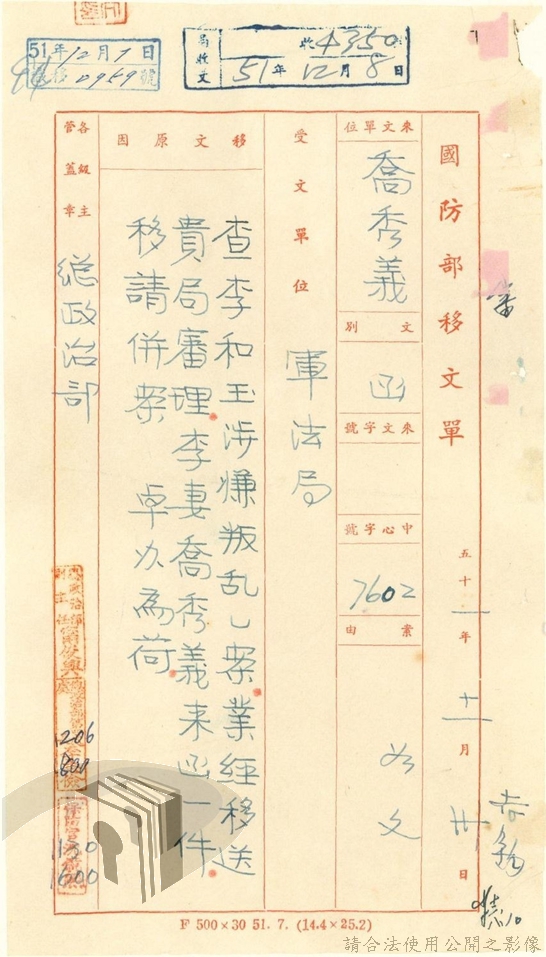 51年12月7日
0959號
局收文
收4350
51年12月8日
國防部移文單
五十一年十一月卅日
來文單位
喬秀義
文別
函
來文字號
中心字號
7602
案由
如文
受文單位
軍法局
移文原因
查李和玉涉嫌叛乱乙案業經移送
貴局審理李妻喬秀義来函一件
移請併案 卓办為荷
各級主管蓋章
總政治部
1206
0800
1130
1600
F 500×30 51. 7. (14.4×25.2)
請合法使用公開之影像